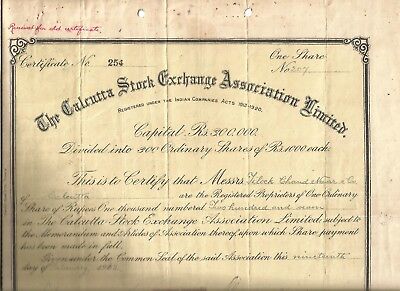 Renewed for old certificate.
Certificate No. 254
One Share
No 207
The Calcutta Stock Exchange Association Limited.
Registered under the Indian Companies Acts 1912-1920.
Capital Rs. 300.000.
Divided into 300 Ordinary Shares of Rs. 1000 each.
This is to Certify that Messrs Chand & Co.
of Calcutta are the Registered Proprietors of One Ordinary
Share of Rupees One thousand numbered Two hundred and seven
in The Calcutta Stock Exchange Association Limited subject to
the Memorandum and Articles of Association thereof, upon which Share payment
has been made in full.
Given under the Common Seal of the said Association this nineteenth
day of